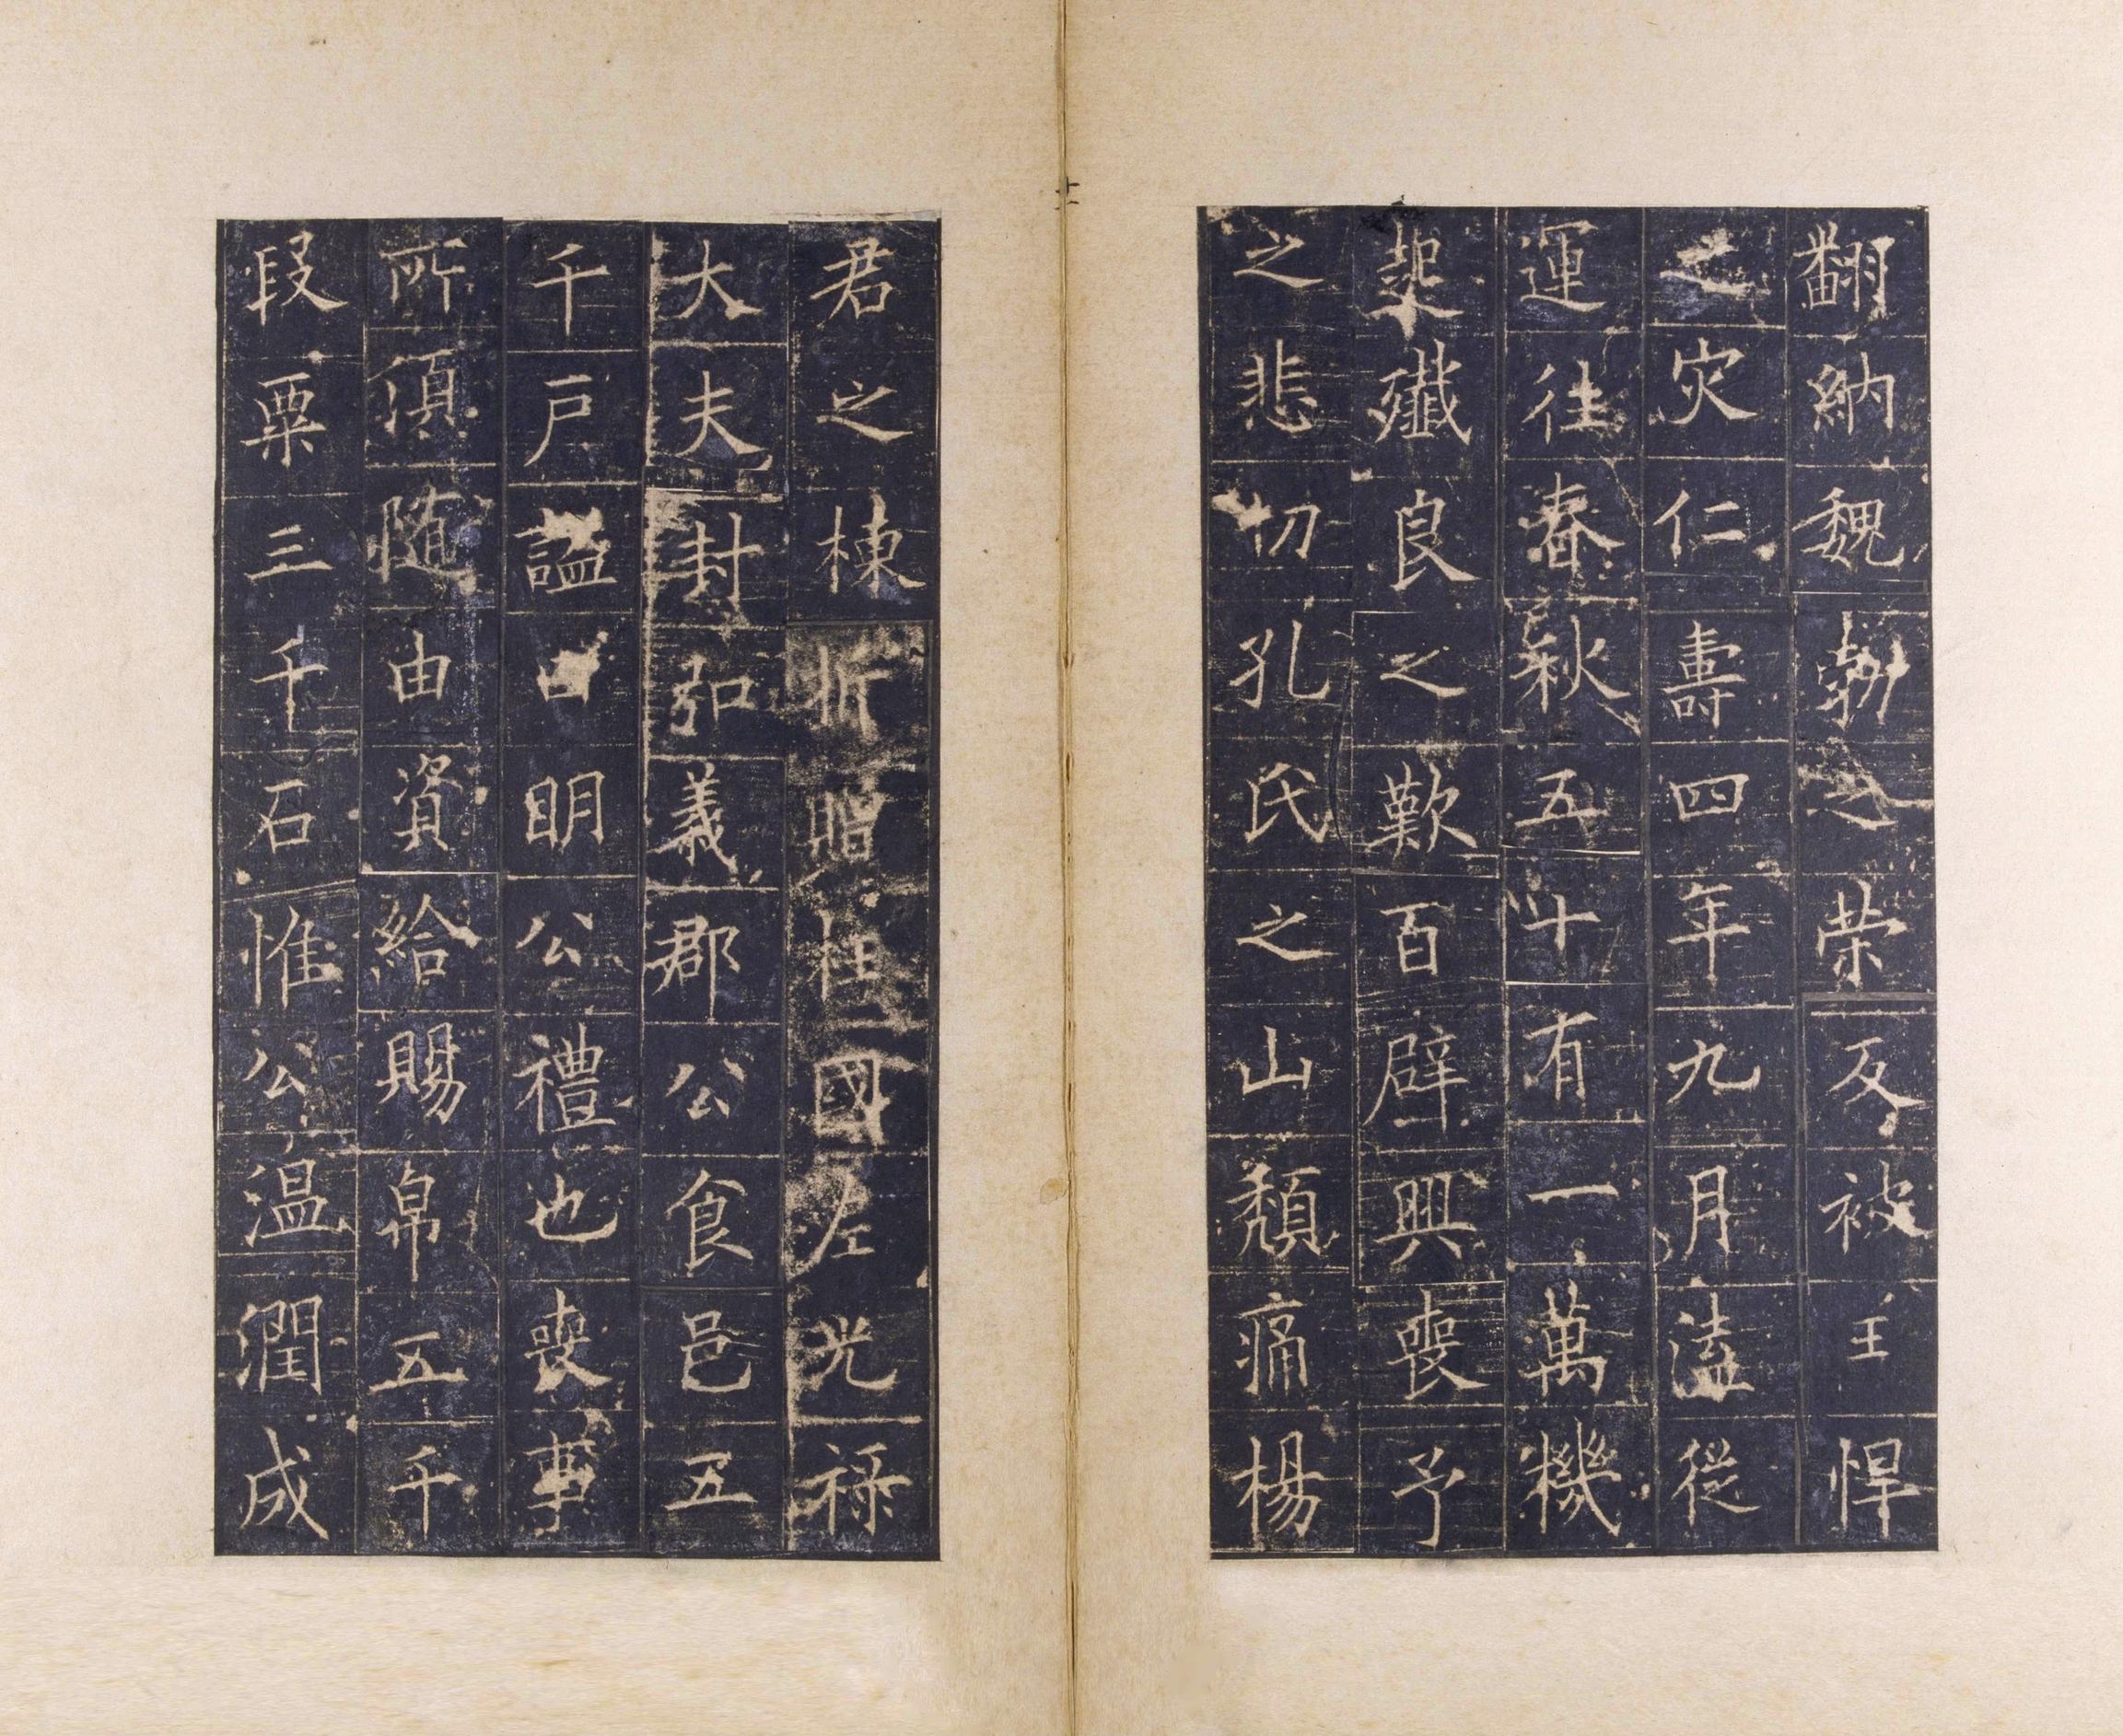 翻納魏勃之荣反被王悍
之灾仁壽四年九月溘從
運往春秋五十有一萬機
起殲良之歎百辟興喪予
之悲切孔氏之山頹痛楊
君之棟折贈柱國左光禄
大夫封弘義郡公食邑五
千戶謚曰明公禮也喪事
所須随由資給賜帛五千
段粟三千石惟公温潤成